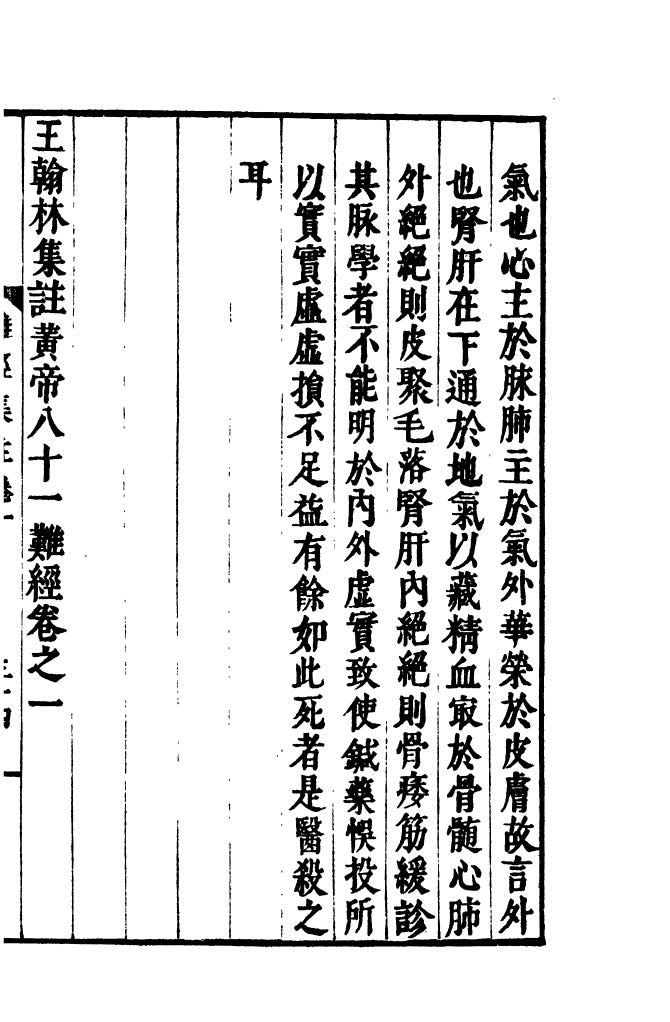 氣也心主於脉肺主於氣外華榮於皮膚故言外
也腎肝在下通於地氣以藏精血㝡於骨髄心肺
外絕絕則皮聚毛落腎肝內絕絕則骨痿筋緩診
其脉學者不能明於內外虛實致使鍼藥悞投所
以實實虛虛損不足益有餘如此死者是醫殺之
耳
王翰林集註黃帝八十一難經卷之一
難經集註卷一